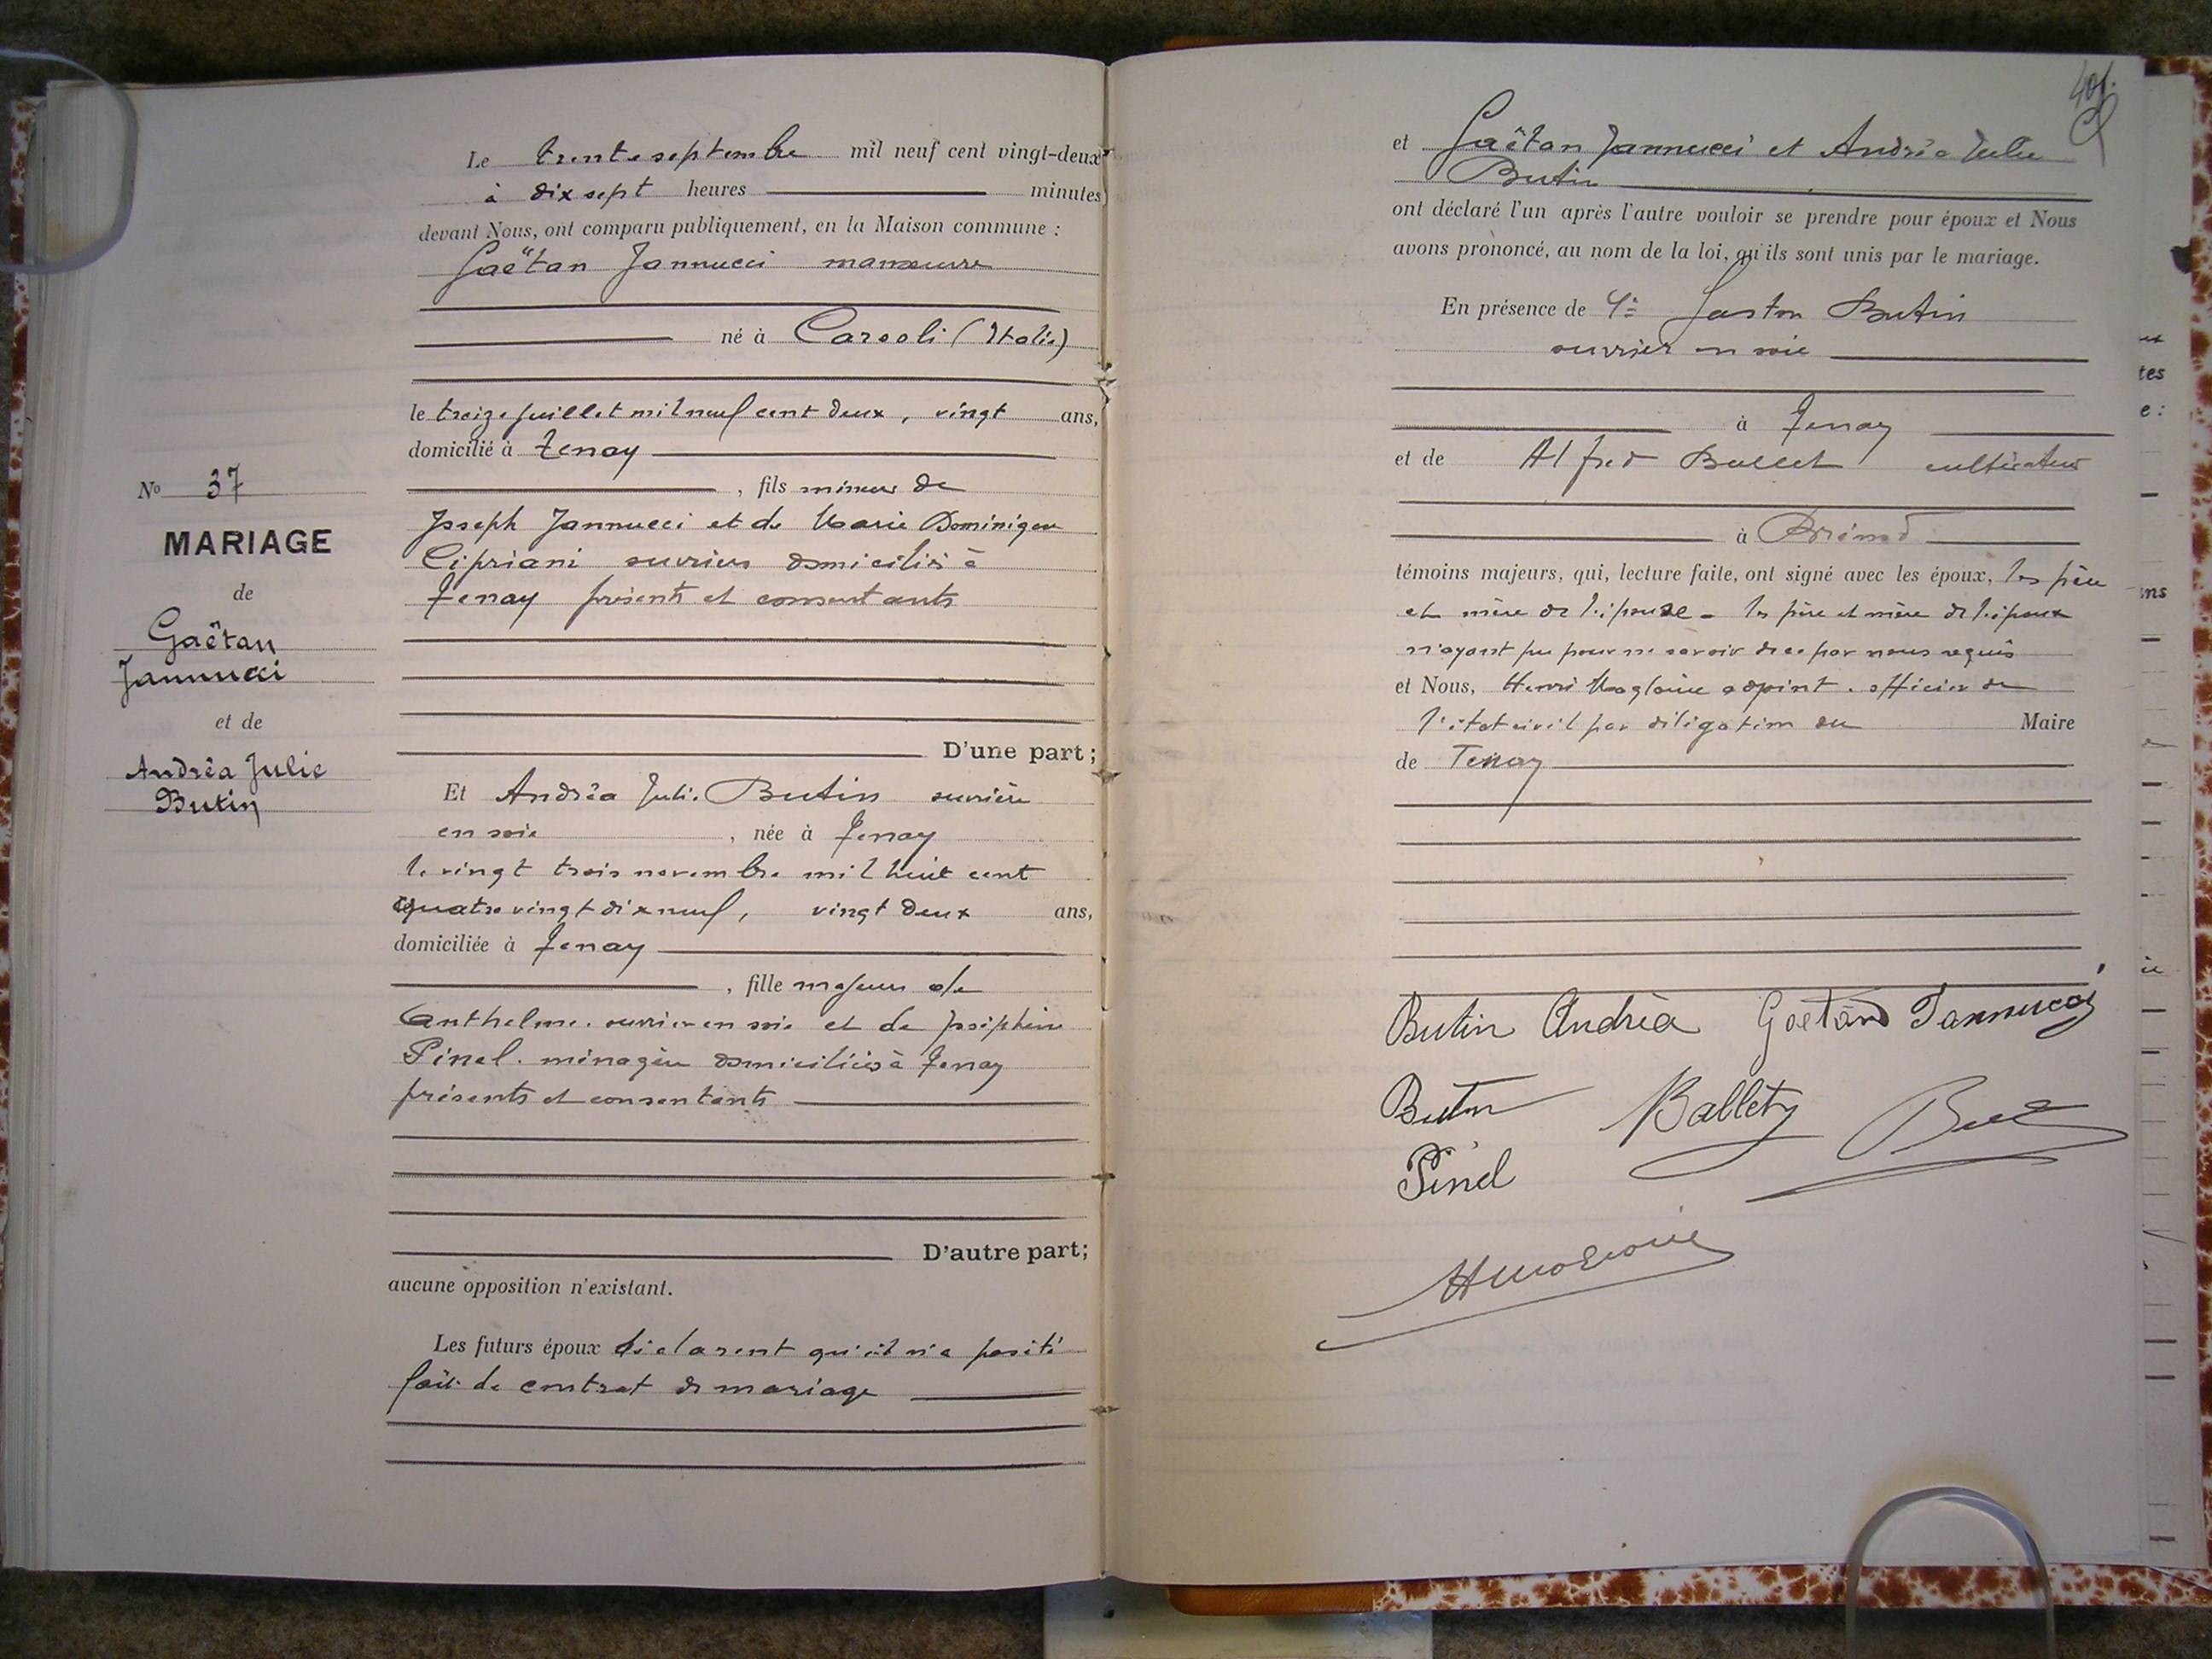 N° 37
MARIAGE
de
Gaëtan
Jannucci
et de
Andréa Julie
Butin
Le trente septembre mil neuf cent vingt-deux
à dix sept heures minutes
devant Nous, ont comparu publiquement, en la Maison commune :
Gaëtan Jannucci manœuvre
né à Carsoli (Italie)
le treize juillet mil neuf cent deux, vingt ans,
domicilié à Tenay
, fils mineur de
Joseph Jannucci et de Marie Dominique
Cipriani ouvriers domiciliés à
Tenay présents et consentants
D'une part ;
Et Andréa Julie Butin ouvrière
en soie , née à Tenay
le vingt trois novembre mil huit cent
quatre vingt dix neuf, vingt deux ans,
domiciliée à Tenay
, fille majeure de
Anthelme. ouvrier en soie et de Joséphine
Pinel. ménagère domiciliés à Tenay
présents et consentants
D'autre part;
aucune opposition n'existant.
Les futurs époux déclarent qu'il n'a pas été
fait de contrat de mariage
401.
et Gaëtan Jannucci et Andréa Julie
Butin
ont déclaré l'un après l'autre vouloir se prendre pour époux et Nous
avons prononcé, au nom de la loi, qu'ils sont unis par le mariage.
En présence de Gaston Butin
ouvrier en soie
à Tenay
et de Alfred cultivateur
à
témoins majeurs, qui, lecture faite, ont signé avec les époux, les père
et mère de l'épouse - les père et mère de l'époux
n'ayant pu pour ne savoir de ce par nous requis
et Nous, Henri Magloire adjoint. officier de
l'état civil par délégation du Maire
de Tenay
Butin Andréa Gaëtano Jannucci
Butin Ballety
Pinel